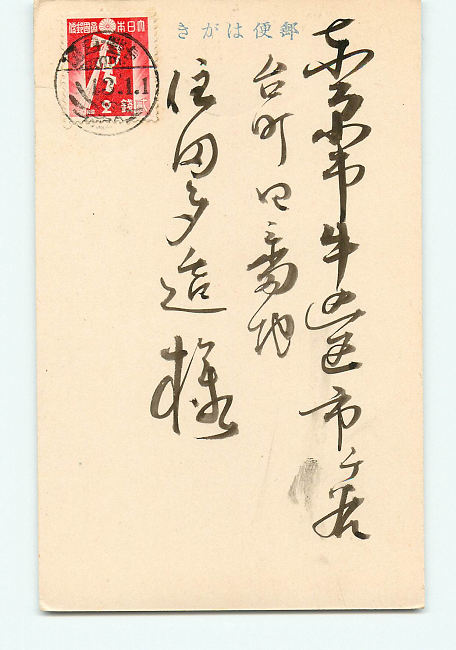 郵便はがき
東京市牛込区市ヶ谷
台町四番地
住田多造様
大日本帝國郵便
2
1.1